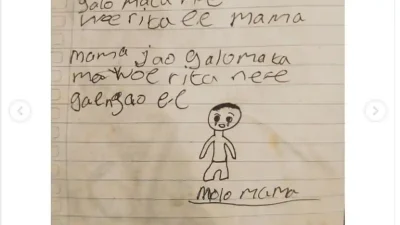 galo mata rite
woe rita ee mama
mama jao galomata
ma woe rita nese
galngao ee
molo mama